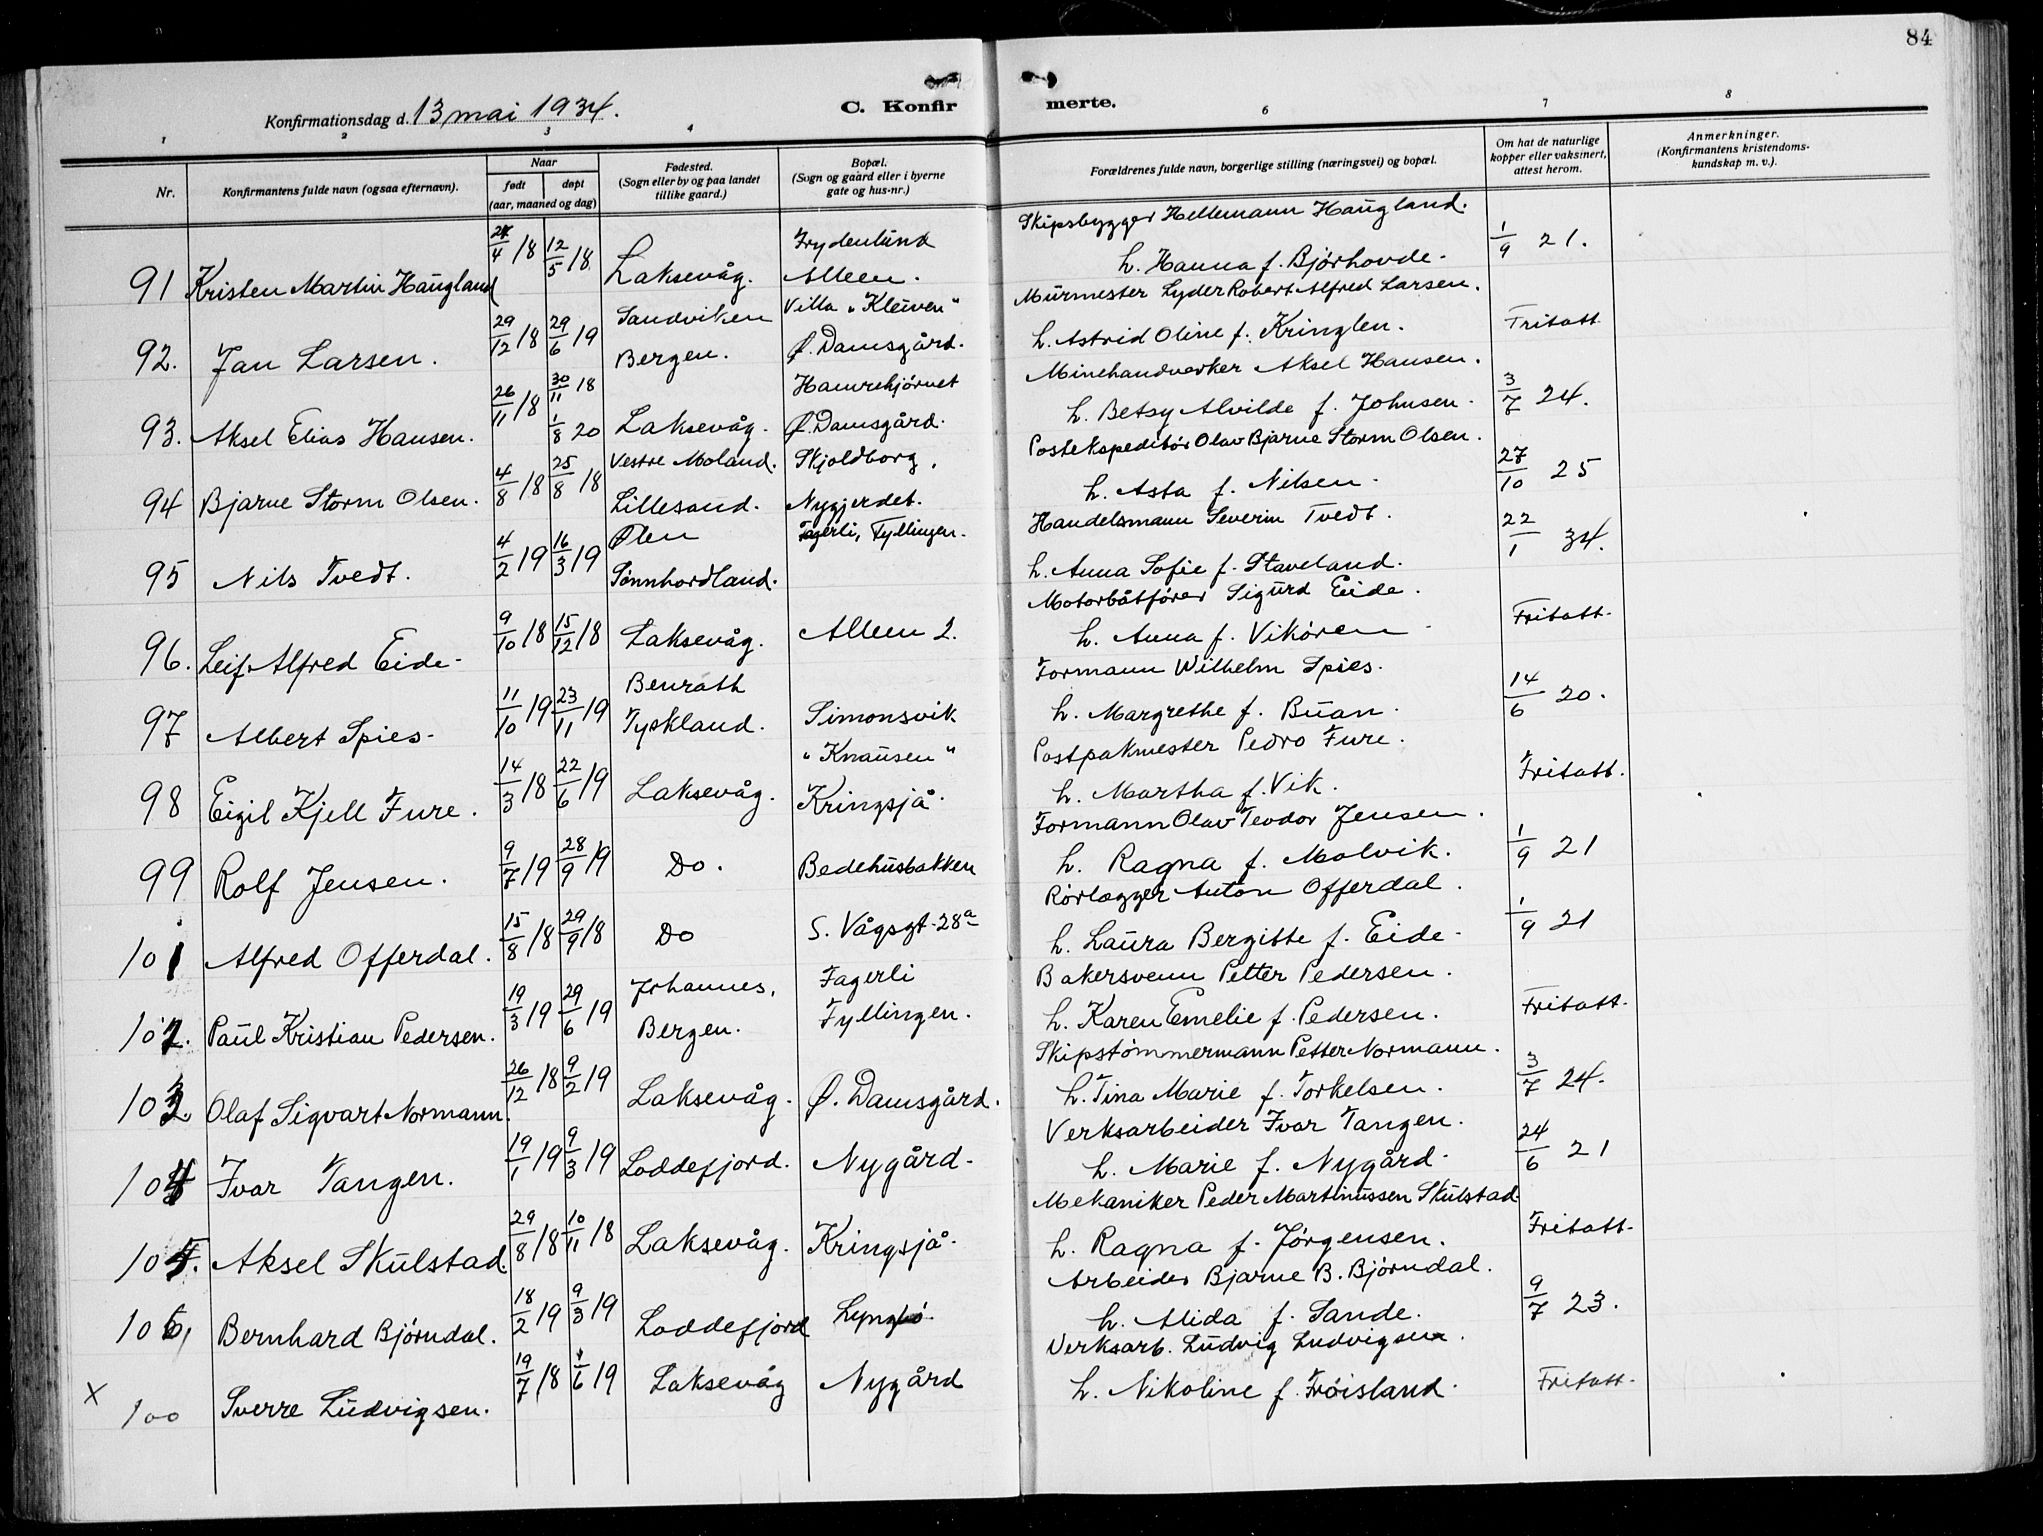 84
Konfirmationsdag d. 13 mai 1934.
C. Konfir merte.
1 2 3 4 6 7 8
Nr.
Konfirmantens fulde navn (ogsaa efternavn).
Naar
født døpt
(aar, maaned og dag)
Fødested.
(Sogn eller by og paa landet
tillike gaard.)
Bopæl.
(Sogn og gaard eller i byerne
gate og hus-nr.)
Forældrenes fulde navn, borgerlige stilling (næringsvei) og bopæl.
Om hat de naturlige
kopper eller vaksinert,
attest herom.
Anmerkninger.
(Konfirmantens kristendoms-
kundskap m. v.).
24/4 18 12/5 18 Frydenlund Skipsbygger Hellemann Haugland. 1/9 21.
91 Kristen Martin Haugland Laksevåg. Alleen. h. Hanna f. Bjørhovde.
29/12 18 29/6 19 Sandviken Villa "Kleiven" Murmester Lyder Robert Alfred Larsen. Fritatt
92. Jan Larsen. Bergen. Ø. Damsgård. h. Astrid Oline f. Kringlen.
26/11 18 30/11 18 Hamrehjørnet Minehandverker Aksel Hansen. 3/7 24.
93. Aksel Elias Hansen. 1/8 20 Laksevåg. Ø. Damsgård. h. Betsy Alvilde f. Johnsen.
4/8 18 25/8 18 Vestre Moland. Skjoldborg. Postekspeditør Olav Bjarne Storm Olsen. 27/10 25
94 Bjarne Storm Olsen. Lillesand. Nygjerdet. h. Asta f. Nilsen.
4/2 19 16/3 19 Ølen Fagerli, Fyllingen. Handelsmann Severin Tvedt. 22/1 34.
95 Nils Tvedt. Sønnhordland. h. Anna Sofie f. Staveland.
9/10 18 15/12 18 Motorbåtfører Sigurd Eide. Fritatt.
96. Leif Alfred Eide. Laksevåg. Alleen 2. h. Anna f. Vikøren
11/10 19 23/11 19 Benrath Formann Wilhelm Spies. 14/6 20.
97 Albert Spies. Tyskland. Simonsvik h. Margrethe f. Buan.
14/3 18 22/6 19 "Knausen" Postpakmester Pedro Fure. Fritatt.
98 Eigil Kjell Fure. Laksevåg. Kringsjå. h. Martha f. Vik.
9/7 19 28/9 19 Formann Olav Teodor Jensen. 1/9 21
99 Rolf Jensen. Do. Bedehusbakken h. Ragna f. Molvik.
15/8 18 29/9 18 Rørlægger Anton Offerdal. 1/9 21
101 Alfred Offerdal. Do S. Vågsgt. 28a h. Laura Bergitte f. Eide.
19/3 19 29/6 19 Johannes, Fagerli Bakersvenn Petter Pedersen. Fritatt.
102. Paul Kristian Pedersen. Bergen. Fyllingen. h. Karen Emelie f. Pedersen.
26/12 18 9/2 19 Skipstømmermann Petter Normann. 3/7 24.
103. Olaf Sigvart Normann. Laksevåg. Ø. Damsgård. h. Tina Marie f. Torkelsen.
19/1 19 9/3 19 Verksarbeider Ivar Tangen. 24/6 21
104 Ivar Tangen. Loddefjord. Nygård. h. Marie f. Nygård.
29/8 18 10/11 18 Mekaniker Peder Martinussen Skulstad Fritatt.
105. Aksel Skulstad. Laksevåg. Kringsjå. h. Ragna f. Jørgensen.
18/2 19 9/3 19 Arbeider Bjarne B. Bjørndal. 9/7 23.
106, Bernhard Bjørndal. Loddefjord Lyngbø h. Alida f. Sande.
19/7 18 1/6 19 Verksarb. Ludvig Ludvigsen. Fritatt.
x 100 Sverre Ludvigsen. Laksevåg Nygård h. Nikoline f. Frøisland.